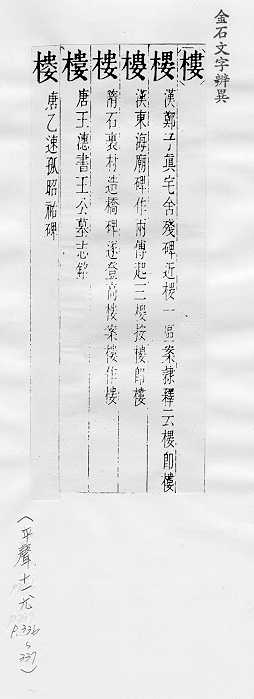 金石文字辨異
樓
漢鄭子真宅舍殘碑近樓一區案隸釋云樓即樓
漢東海廟碑作兩傳起三樓按樓即樓
隋石裏村造橋碑遂登高樓案樓作樓
唐王德書王公墓志銘
楼 唐乙速孤昭祐碑
(平聲十一尤 P.336 ~ 337)